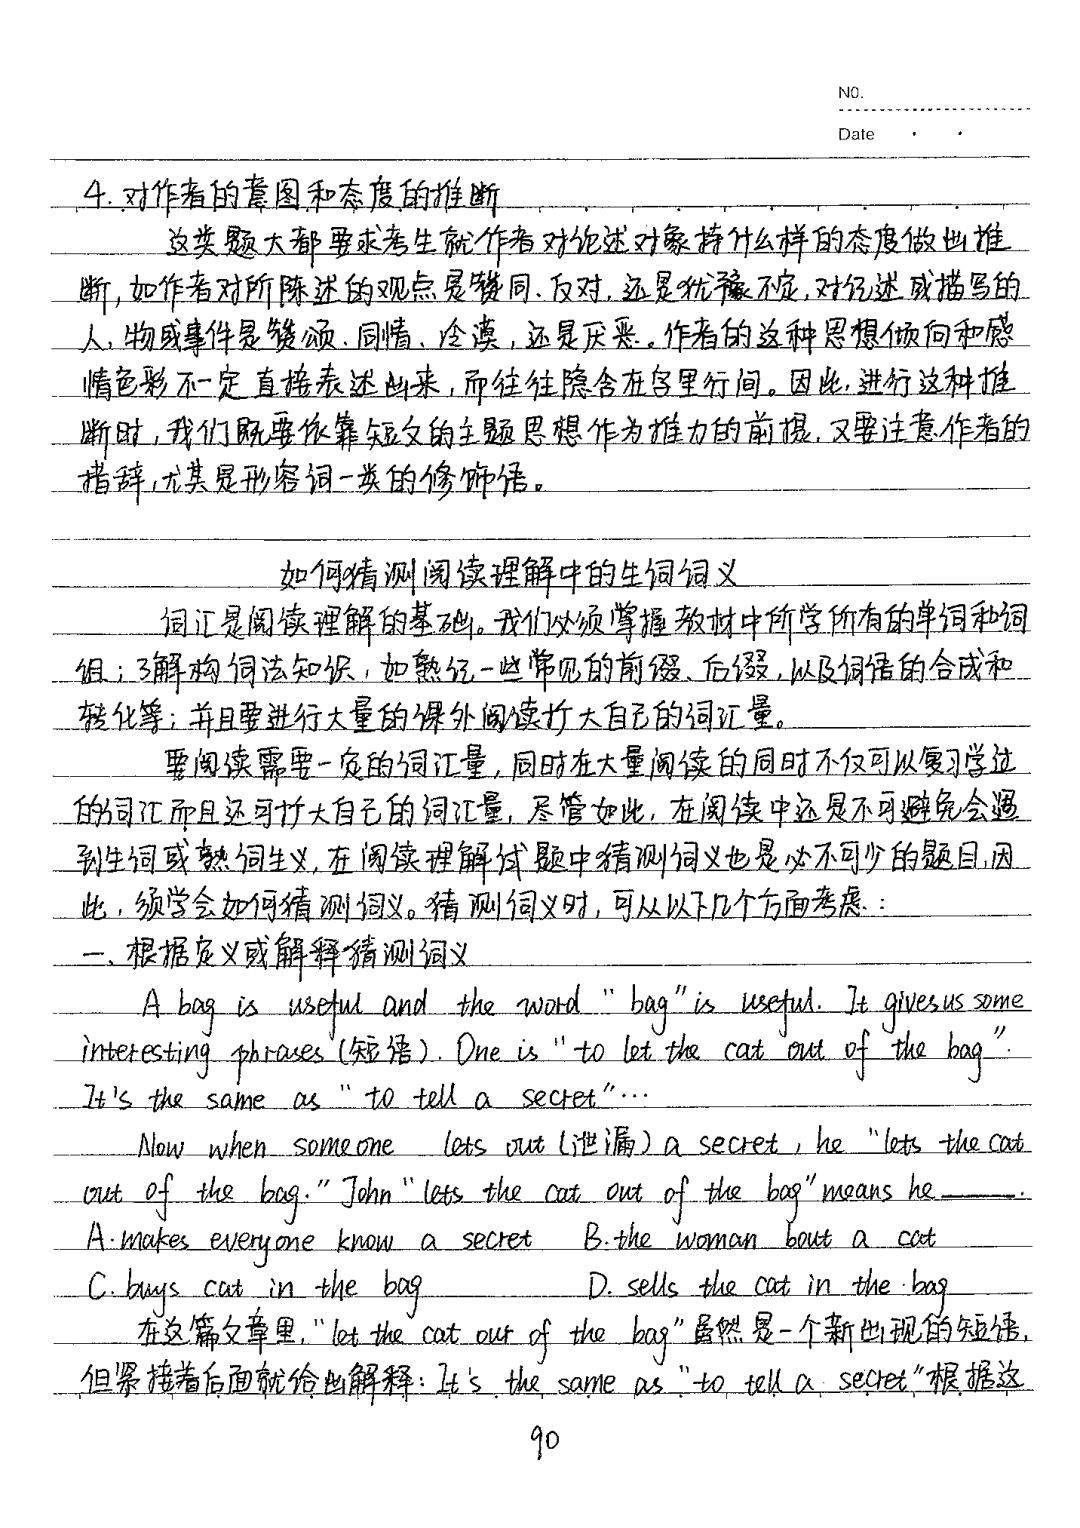 NO.
Date
4. 对作者的意图和态度的推断
这类题大都要求考生就作者对论述对象持什么样的态度做出推
断,如作者对所陈述的观点是赞同、反对,还是犹豫不定,对记述或描写的
人、物或事件是赞颂、同情、冷漠,还是厌恶。作者的这种思想倾向和感
情色彩不一定直接表述出来,而往往隐含在字里行间。因此,进行这种推
断时,我们既要依靠短文的主题思想作为推力的前提,又要注意作者的
措辞,尤其是形容词一类的修饰语。
如何猜测阅读理解中的生词词义
词汇是阅读理解的基础。我们必须掌握教材中所学所有的单词和词
组;了解构词法知识,如熟记一些常见的前缀、后缀,以及词语的合成和
转化等;并且要进行大量的课外阅读扩大自己的词汇量。
要阅读需要一定的词汇量,同时在大量阅读的同时不仅可以复习学过
的词汇而且还可扩大自己的词汇量,尽管如此,在阅读中还是不可避免会遇
到生词或熟词生义,在阅读理解试题中猜测词义也是必不可少的题目,因
此,须学会如何猜测词义。猜测词义时,可从以下几个方面考虑:
一、根据定义或解释猜测词义
A bag is useful and the word "bag" is useful. It gives us some
interesting phrases (短语). One is "to let the cat out of the bag".
It's the same as "to tell a secret"…
Now when someone lets out (泄漏) a secret, he "lets the cat
out of the bag." John "lets the cat out of the bag" means he ____.
A. makes everyone know a secret B. the woman bout a cat
C. buys cat in the bag D. sells the cat in the bag
在这篇文章里,"let the cat out of the bag" 虽然是一个新出现的短语,
但紧接着后面就给出解释: It's the same as "to tell a secret" 根据这
90